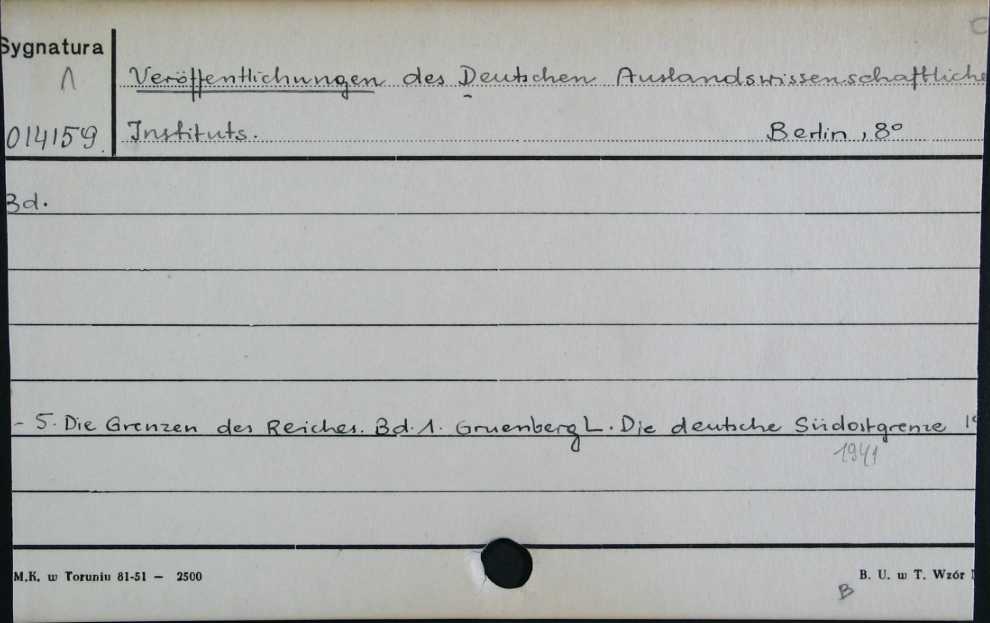 Sygnatura
1
Veröffentlichungen des Deutschen Auslandswissenschaftliche
014159
Instituts. Berlin, 8º
Bd.
- 5. Die Grenzen des Reiches. Bd. 1. Gruenberg L. Die deutsche Südostgrenze 19
1941
M.K. w Toruniu 81-51 — 2500
B. U. w T. Wzór
B